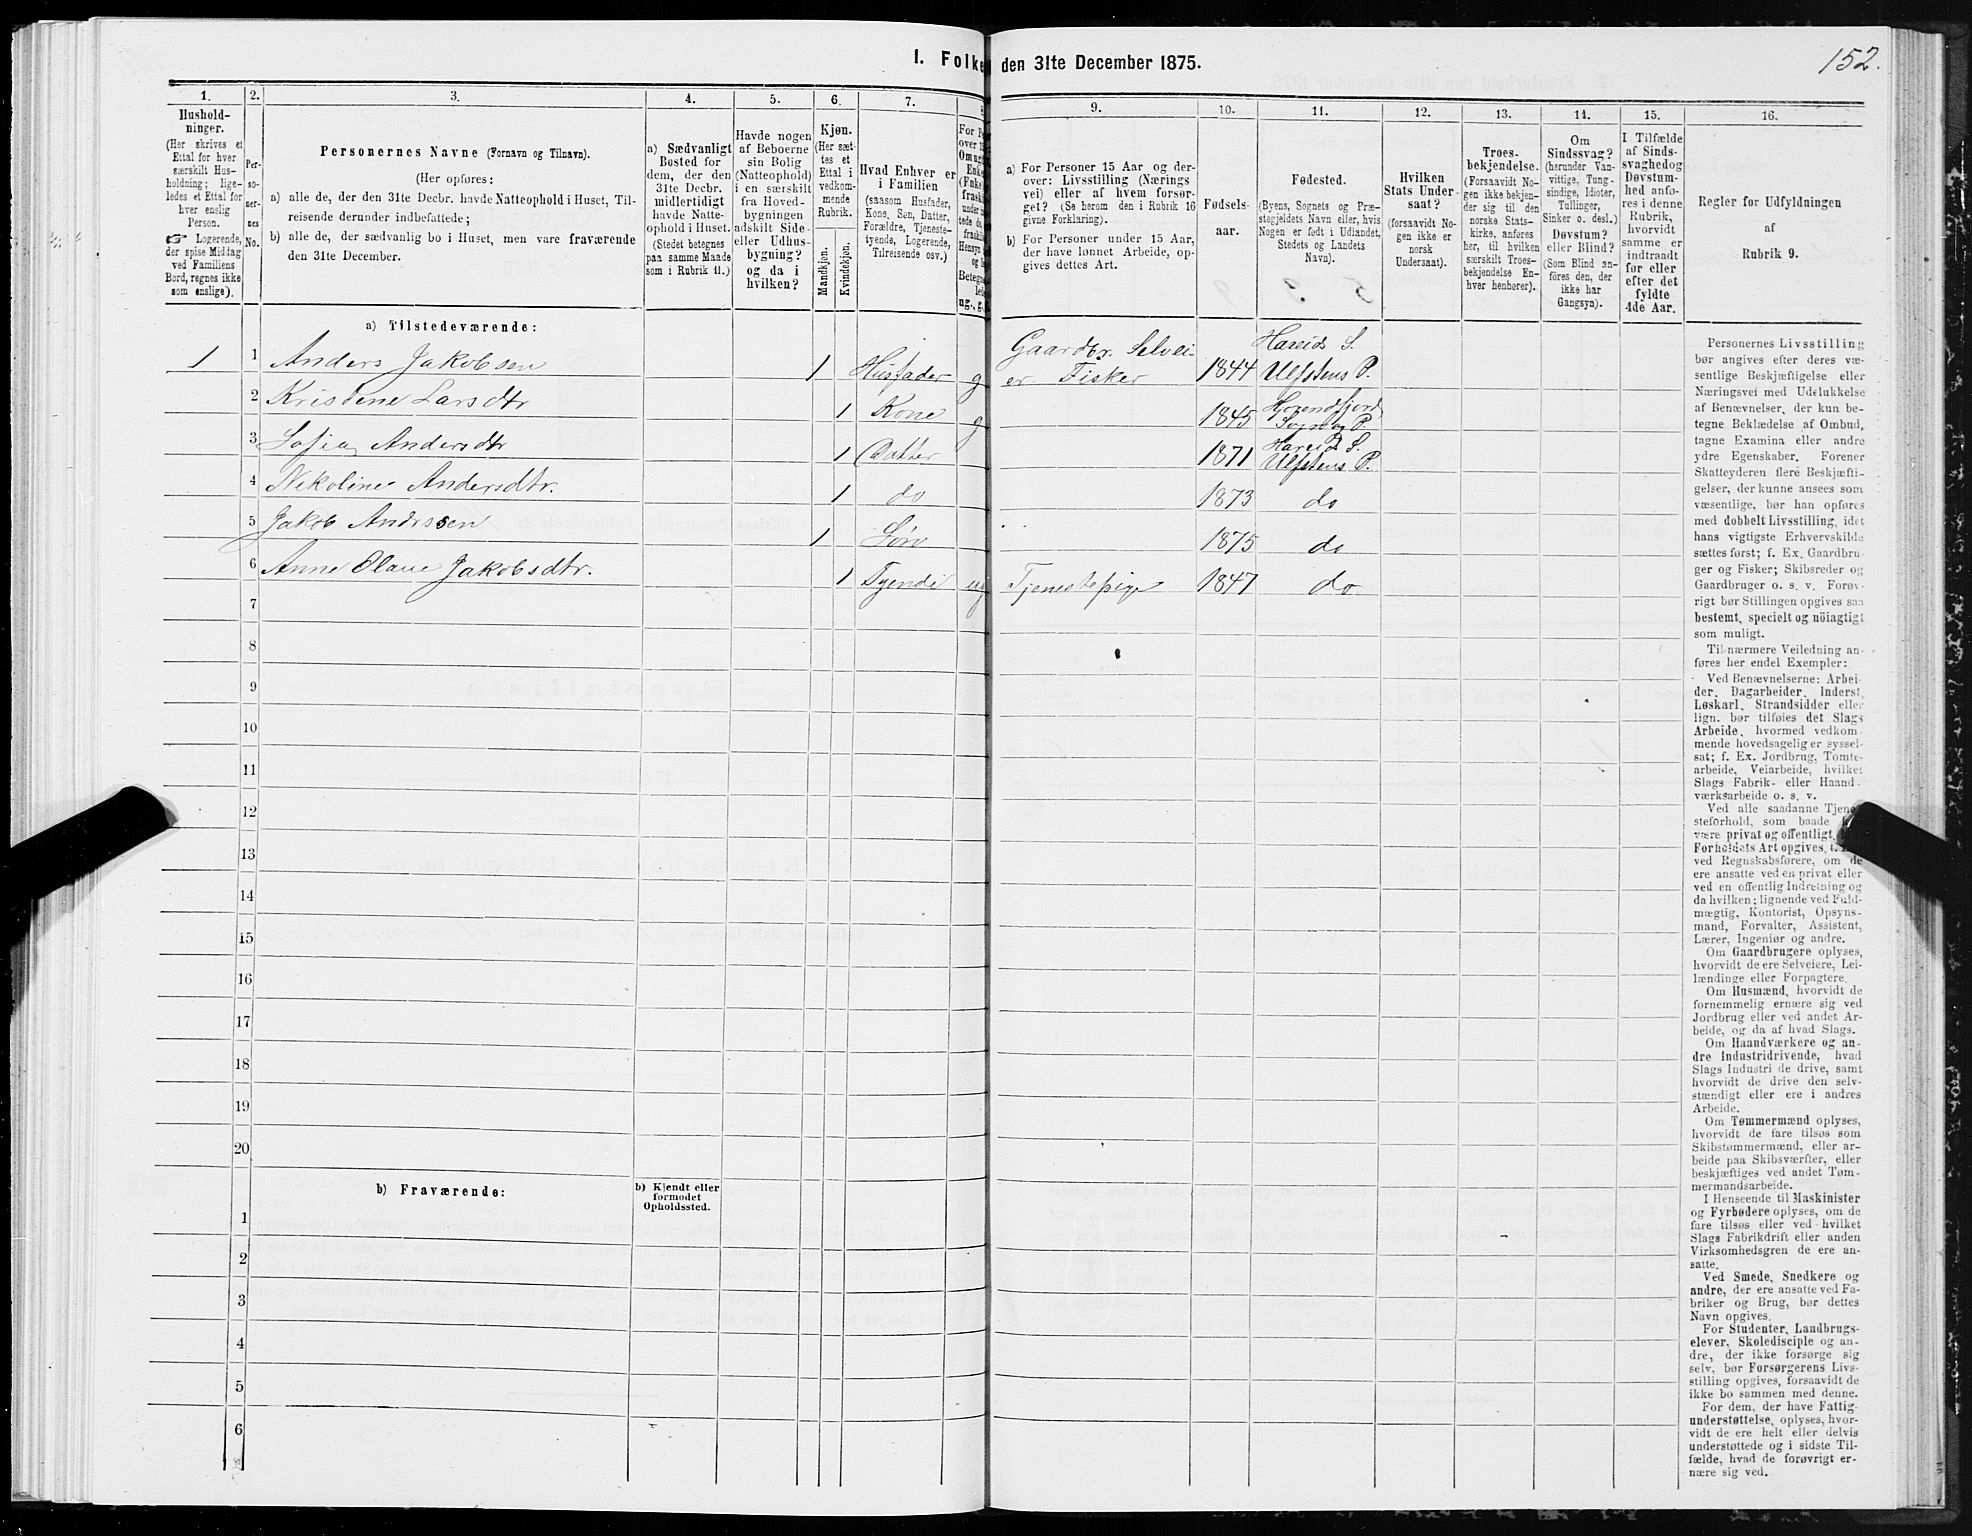 152.
1. Folke den 31te December 1875.
1. 2. 3. 4. 5. 6. 7. 9. 10. 11. 12. 13. 14. 15. 16.
Hushold-
ninger.
(Her skrives et
Ettal for hver
særskilt Hus-
holdning; lige-
ledes et Ettal for
hver enslig
Person.
Logerende,
der spise Middag
ved Familiens
Bord, regnes ikke
som enslige).
Per-
so-
ner-
nes
No.
Personernes Navne (Fornavn og Tilnavn).
(Her opføres:
a) alle de, der den 31te Decbr. havde Natteophold i Huset, Til-
reisende derunder indbefattede;
b) alle de, der sædvanlig bo i Huset, men vare fraværende
den 31te December.
a) Sædvanligt
Bosted for
dem, der den
31te Decbr.
midlertidigt
havde Natte-
ophold i Huset.
(Stedet betegnes
paa samme Maade
som i Rubrik 11.)
Havde nogen
af Beboerne
sin Bolig
(Natteophold)
i en særskilt
fra Hoved-
bygningen
adskilt Side-
eller Udhus-
bygning?
og da i
hvilken?
Kjøn.
(Her sæt-
tes et
Ettal i
vedkom-
mende
Rubrik.
Mandkjøn.
Kvindekjøn.
Hvad Enhver er
i Familien
(saasom Husfader,
Kone, Søn, Datter,
Forældre, Tjeneste-
tyende, Logerende,
Tilreisende osv.)
ug., g.
a) For Personer 15 Aar og der-
over: Livsstilling (Nærings
vei) eller af hvem forsør-
get? (Se herom den i Rubrik 16
givne Forklaring).
b) For Personer under 15 Aar,
der have lønnet Arbeide, op-
gives dettes Art.
Fødsels-
aar.
Fødested.
(Byens, Sognets og Præ-
stegjeldets Navn eller, hvis
Nogen er født i Udlandet,
Stedets og Landets
Navn).
Hvilken
Stats Under-
saat?
(forsaavidt No-
gen ikke er
norsk
Undersaat).
Troes-
bekjendelse.
(Forsaavidt No-
gen ikke bekjen-
der sig til den
norske Stats-
kirke, anføres
her, til hvilken
særskilt Troes-
bekjendelse En-
hver henhører).
Om
Sindssvag?
(herunder Van-
vittige, Tung-
sindige, Idioter,
Tullinger,
Sinker o. desl.)
Døvstum?
eller Blind?
(Som Blind an-
føres den, der
ikke har
Gangsyn).
I Tilfælde
af Sinds-
svaghed og
Døvstum-
hed anfø-
res i denne
Rubrik,
hvorvidt
samme er
indtraadt
før eller
efter det
fyldte
4de Aar.
Regler for Udfyldningen
af
Rubrik 9.
a) Tilstedeværende:
1 1 Anders Jakobsen 1 Husfader g Gaardbr. Selvei-er Fisker 1844 Hareids S. Ulfstens P.
2 Kristene Larsdtr 1 Kone g 1845
3 Sofia Andersdtr 1 Datter 1871 Hareid S. Ulfstens P.
4 Nikoline Andersdtr. 1 do 1873 do
5 Jakob Anderssen 1 Søn 1875 do
6 Anne Olave Jakobsdtr. 1 Tyende ug Tjenestepige 1847 do
7
8
9
10
11
12
13
14
15
16
17
18
19
20
b) Fraværende:
b) Kjendt eller
formodet
Opholdssted.
1
2
3
4
5
6
Personernes Livsstilling
bør angives efter deres væ-
sentlige Beskjæftigelse eller
Næringsvei med Udelukkelse
af Benævnelser, der kun be-
tegne Beklædelse af Ombud,
tagne Examina eller andre
ydre Egenskaber. Forener
Skatteyderen flere Beskjæfti-
gelser, der kunne ansees som
væsentlige, bør han opføres
med dobbelt Livsstilling, idet
hans vigtigste Erhvervskilde
sættes først; f. Ex. Gaardbru-
ger og Fisker; Skibsreder og
Gaardbruger o. s. v. Forøv-
rigt bør Stillingen opgives saa
bestemt, specielt og nöiagtigt
som muligt.
Til nærmere Veiledning an-
føres her endel Exempler:
Ved Benævnelserne: Arbei-
der, Dagarbeider, Inderst,
Løskarl, Strandsidder eller
lign. bør tilføies det Slags
Arbeide, hvormed vedkom-
mende hovedsagelig er syssel-
sat; f. Ex. Jordbrug, Tomte-
arbeide, Veiarbeide, hvilket
Slags Fabrik- eller Haand-
værksarbeide o. s. v.
Ved alle saadanne Tjene-
steforhold, som baade
være privat og offentligt,
Forholdets Art opgives,
ved Regnskabsførere, om de
ere ansatte ved en privat eller
ved en offentlig Indretning og
da hvilken; lignende ved Fuld-
mægtig, Kontorist, Opsyns-
mand, Forvalter, Assistent,
Lærer, Ingeniør og andre.
Om Gaardbrugere oplyses,
hvorvidt de ere Selveiere, Lei-
lændinge eller Forpagtere.
Om Husmænd, hvorvidt de
fornemmelig ernære sig ved
Jordbrug eller ved andet Ar-
beide, og da af hvad Slags.
Om Haandværkere og an-
dre Industridrivende, hvad
Slags Industri de drive, samt
hvorvidt de drive den selv-
stændigt eller ere i andres
Arbeide.
Om Tømmermænd oplyses,
hvorvidt de fare tilsøs som
Skibstømmermænd, eller ar-
beide paa Skibsværfter, eller
beskjæftiges ved andet Tøm-
mermandsarbeide.
I Henseende til Maskinister
og Fyrbødere oplyses, om de
fare tilsøs eller ved hvilket
Slags Fabrikdrift eller anden
Virksomhedsgren de ere an-
satte.
Ved Smede, Snedkere og
andre, der ere ansatte ved Fa-
briker og Brug, bør dettes
Navn opgives.
For Studenter, Landbrugs-
elever, Skoledisciple og an-
dre, der ikke forsørge sig
selv, bør Forsørgerens Livs-
stilling opgives, forsaavidt de
ikke bo sammen med denne.
For dem, der have Fattig-
understøttelse, oplyses, hvor-
vidt de ere helt eller delvis
understøttede og i sidste Til-
fælde, hvad de forøvrigt er-
nære sig ved.